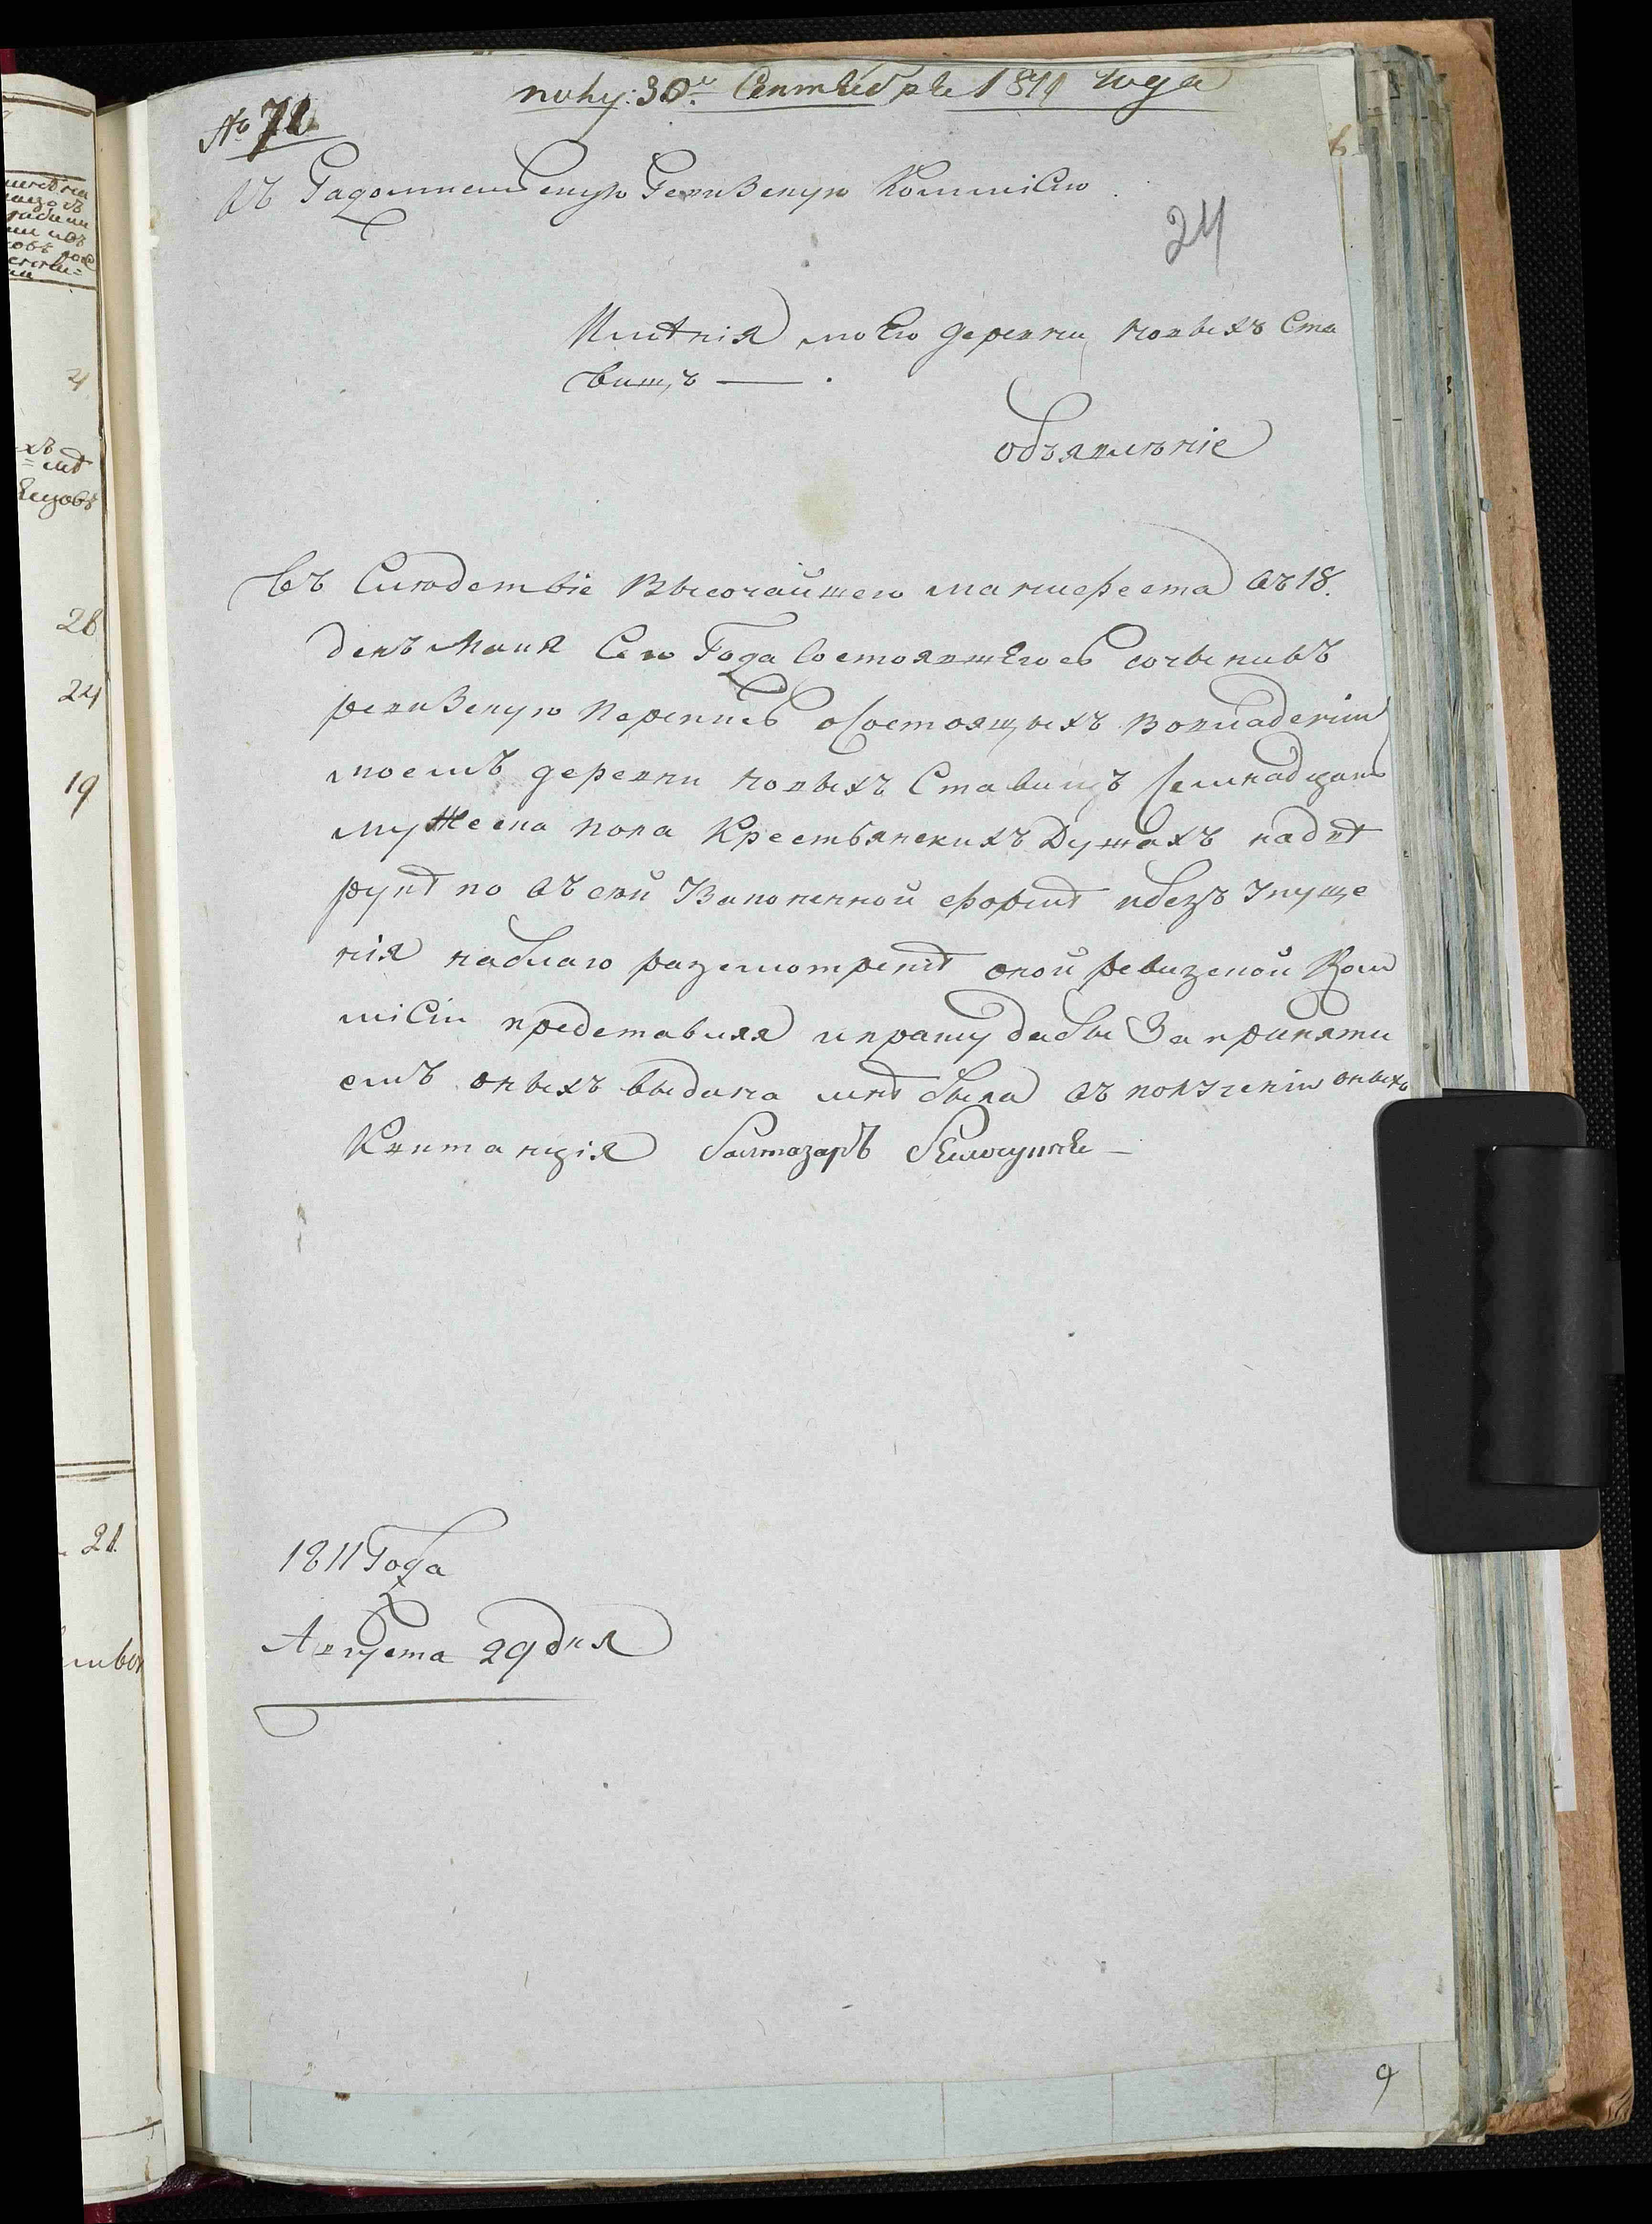 № 71
получ: 30го Сентября 1811 года
Въ Радомысльскую Ревизскую Коммисію
24
Имѣнія моего деревни новыхъ Ста
вищъ —
объявленіе
въ Слюдствіе Высочайшего манифеста въ 18.
денъ Маия Сего Года Состоявшегось сочынивъ
ревизскую перепись оСостоящыхъ вовладеніи
моемъ деревни новыхъ Ставищъ Семнадцать
мужеска пола Крестьянскихъ Душахъ
по въ сей формѣ ибезъ упуще
нія наблаго разсмотреніѣ оной ревизской Ком
мисіи представляя ипрашу дабы Заприняти
емъ оныхъ выдана мнѣ была въ полученіи оныхъ
Квитанція Балтазаръ
1811 Года
Августа 29 дня
9
28
24
19
21